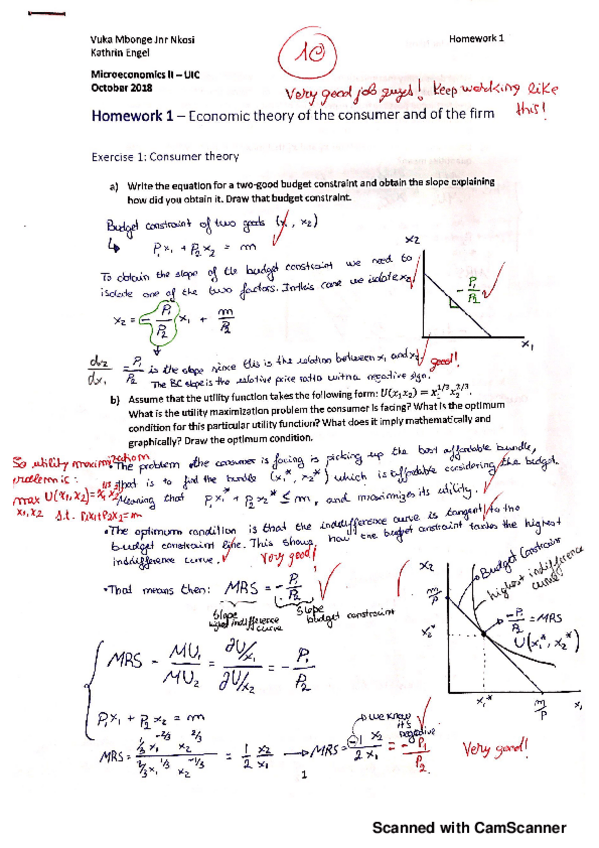 Vuka Mbonge Jnr Nkosi
Homework 1
Kathrin Engel
10
Microeconomics II – UIC
October 2018
Very good job guys! Keep working like this!
Homework 1 – Economic theory of the consumer and of the firm
Exercise 1: Consumer theory
a) Write the equation for a two-good budget constraint and obtain the slope explaining
how did you obtain it. Draw that budget constraint.
Budget constraint of two goods (x₁, x₂)
P₁x₁ + P₂x₂ = m
To obtain the slope of the budget constraint we need to
isolate one of the two factors. In this case we isolate x₂
x₂ = -P₁/P₂ x₁ + m/P₂
x₂
-P₁/P₂
x₁
dx₂/dx₁ = P₁/P₂ is the slope since this is the relation between x₁ and x₂
good!
The BC slope is the relative price ratio with a negative sign.
b) Assume that the utility function takes the following form: U(x₁x₂) = x₁^1/3 x₂^2/3.
What is the utility maximization problem the consumer is facing? What is the optimum
condition for this particular utility function? What does it imply mathematically and
graphically? Draw the optimum condition.
So utility maximization
problem is:
max U(x₁,x₂) = x₁^1/3 x₂^2/3
x₁,x₂
s.t. P₁x₁+P₂x₂=m
The problem the consumer is facing is picking up the best affordable bundle,
that is to find the bundle (x₁*, x₂*) which is affordable considering the budget.
Meaning that P₁x₁* + P₂x₂* ≤ m, and maximizes its utility.
• The optimum condition is that the indifference curve is tangent to the
budget constraint line. This shows, how the budget constraint touches the highest
indifference curve.
Very good!
• That means then: MRS = -P₁/P₂
slope
indifference
curve
slope
budget constraint
x₂
Budget Constraint
highest indifference
curve
m/P
x₂*
-P₁/P₂ = MRS
U(x₁*, x₂*)
x₁*
m/P
x₁
MRS = MU₁/MU₂ = ∂U/x₁ / ∂U/x₂ = -P₁/P₂
P₁x₁ + P₂x₂ = m
we know
it's
negative
MRS = 1/3 x₁^-2/3 x₂^2/3 / 2/3 x₁^1/3 x₂^-1/3 = 1/2 x₂/x₁ → MRS = -1/2 x₂/x₁ = -P₁/P₂
Very good!
1
Scanned with CamScanner